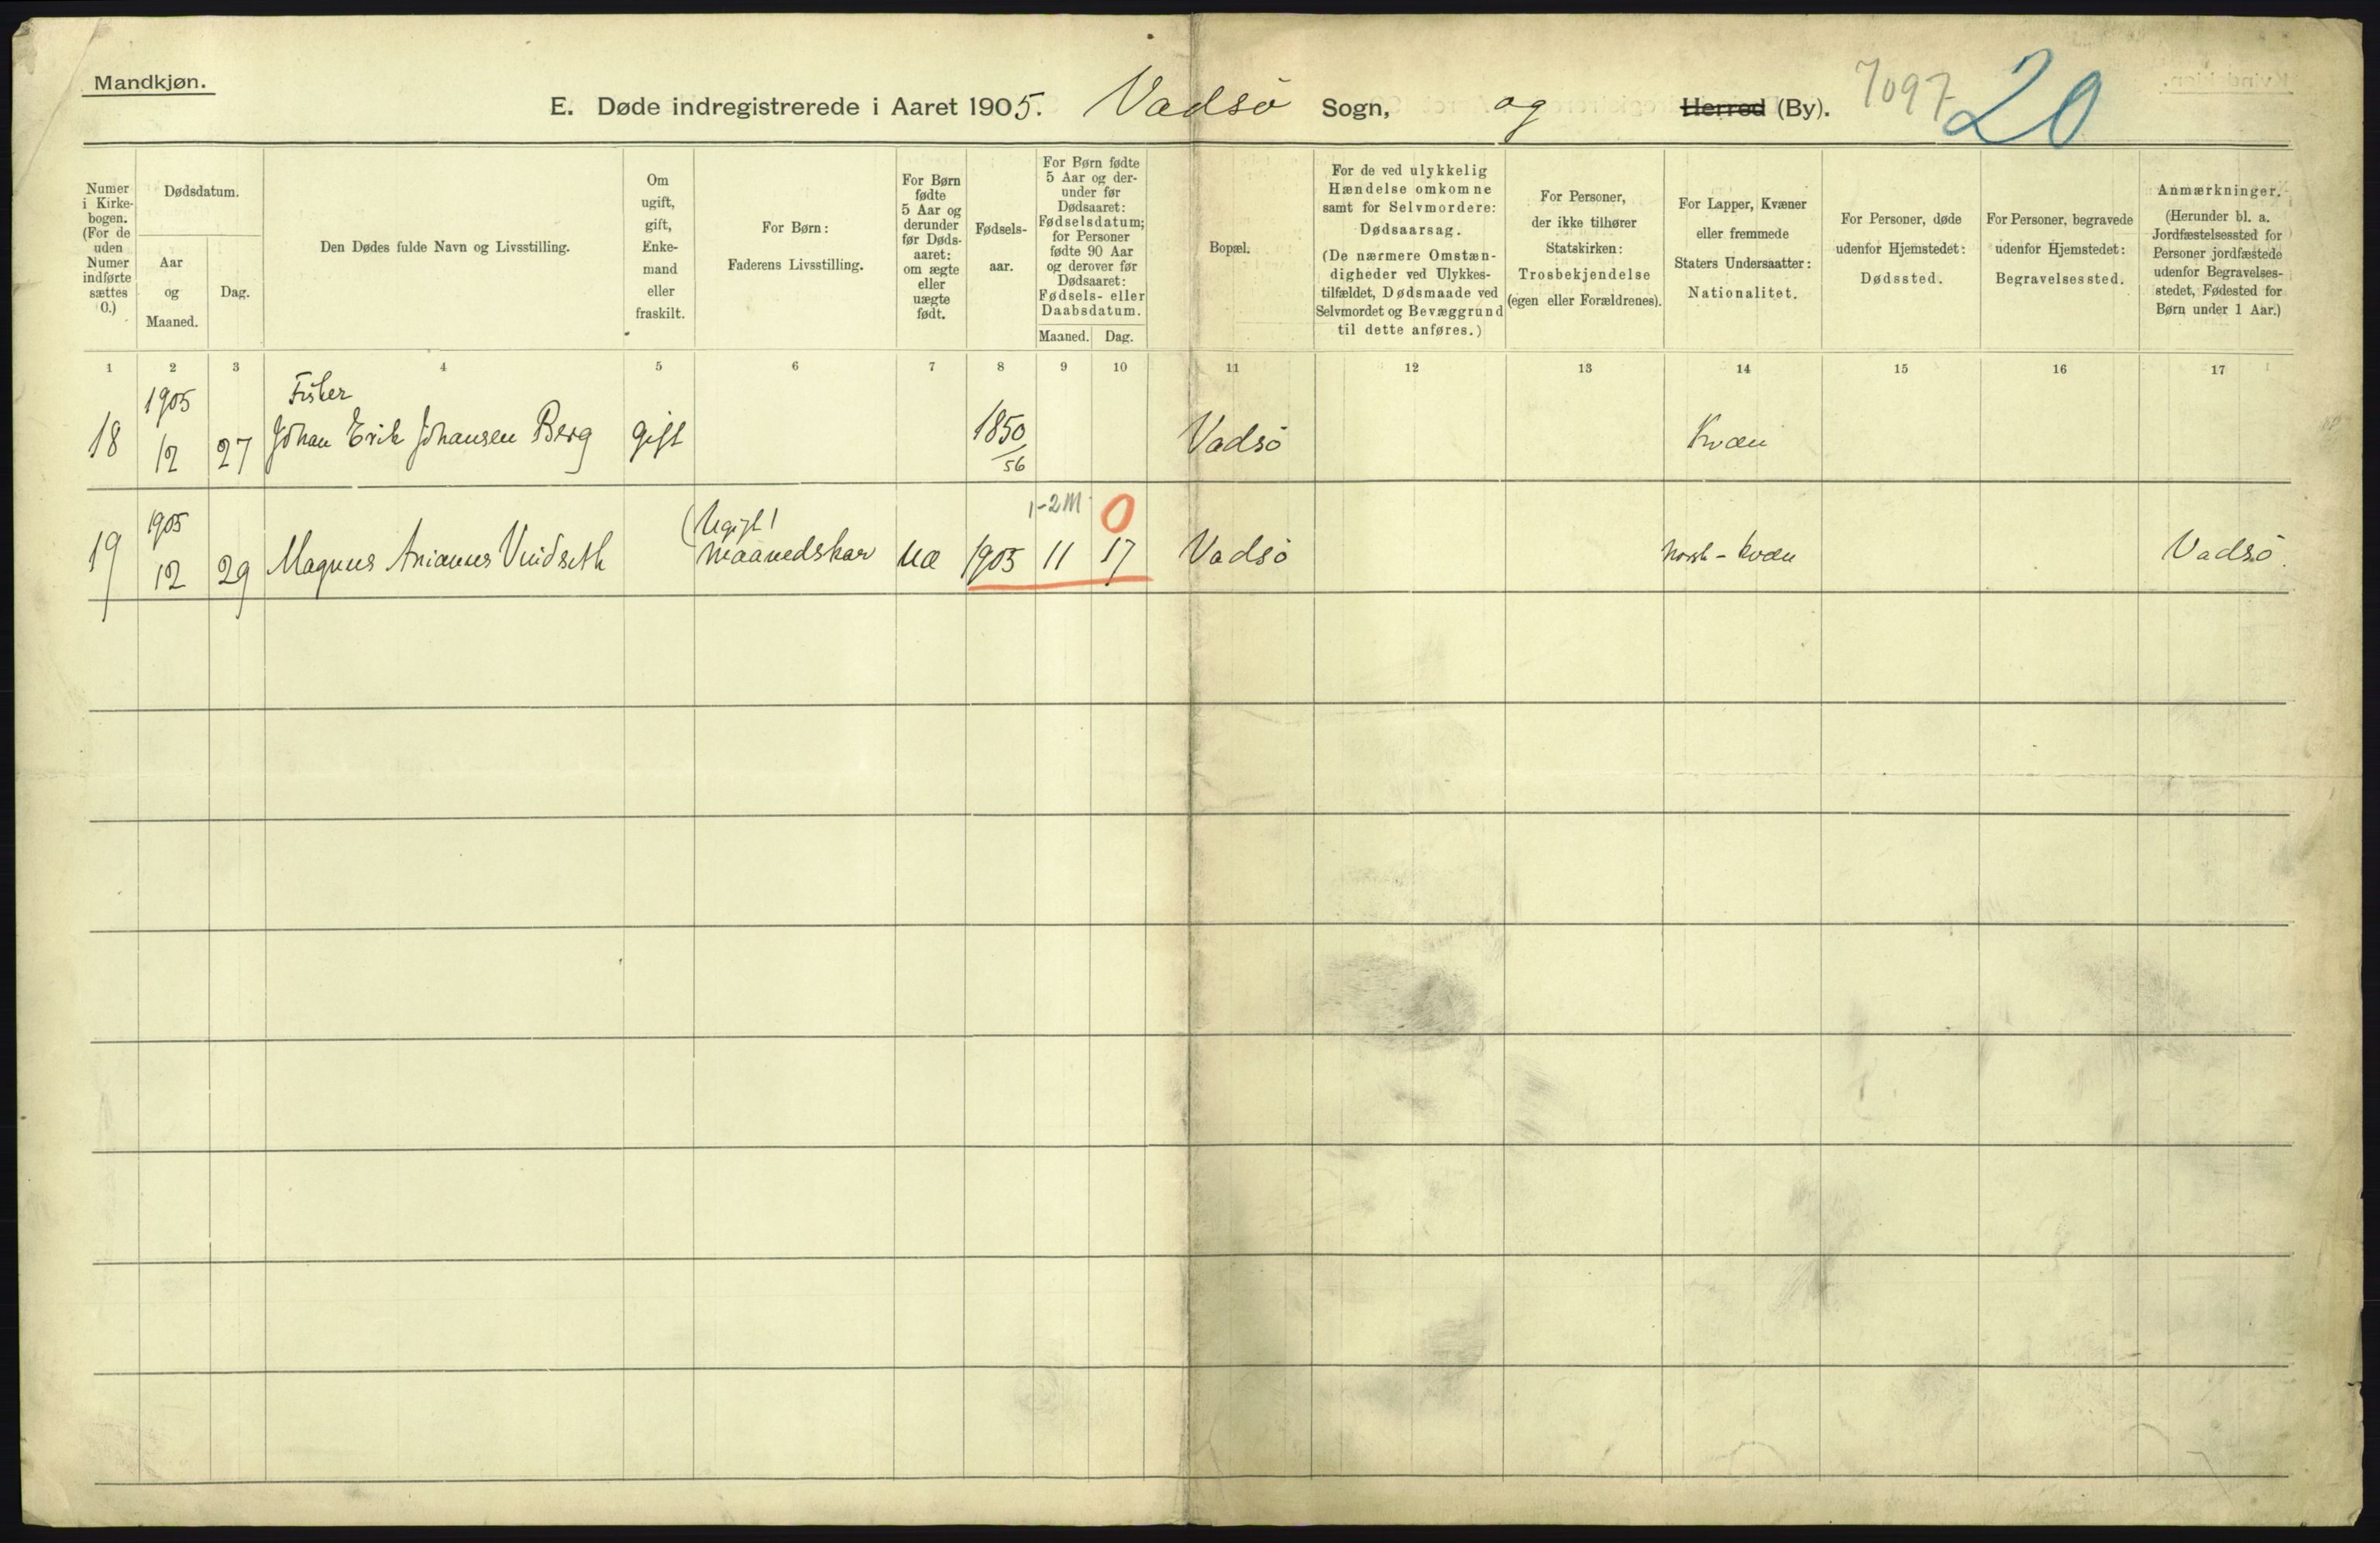 Mandkjøn.
E. Døde indregistrerede i Aaret 1905. Vadsö Sogn, og Herred (By). 7097 20
Numer i Kirkebogen. (For de uden Numer indførte sættes 0.)
Dødsdatum.
Aar og Maaned.
Dag.
Den Dødes fulde Navn og Livsstilling.
Om ugift, gift, Enkemand eller fraskilt.
For Børn:
Faderens Livsstilling.
For Børn fødte 5 Aar og derunder før Dødsaaret: om ægte eller uægte født.
Fødselsaar.
For Børn fødte 5 Aar og derunder før Dødsaaret: Fødselsdatum; for Personer fødte 90 Aar og derover før Dødsaaret: Fødsels- eller Daabsdatum.
Maaned. Dag.
Bopæl.
For de ved ulykkelig Hændelse omkomne samt for Selvmordere: Dødsaarsag.
(De nærmere Omstændigheder ved Ulykkestilfældet, Dødsmaade ved Selvmordet og Bevæggrund til dette anføres.)
For Personer, der ikke tilhører Statskirken: Trosbekjendelse (egen eller Forældrenes).
For Lapper, Kvæner eller fremmede Staters Undersaatter: Nationalitet.
For Personer, døde udenfor Hjemstedet: Dødssted.
For Personer, begravede udenfor Hjemstedet: Begravelsessted.
Anmærkninger.
(Herunder bl. a. Jordfæstelsessted for Personer jordfæstede udenfor Begravelsesstedet, Fødested for Børn under 1 Aar.)
1 2 3 4 5 6 7 8 9 10 11 12 13 14 15 16 17
1905 Fisker
18 12 27 Johan Erik Johansen Berg gift 1850 Vadsö Kvæn
56
1905 (Ugift) 1-2 M 0
19 12 29 Magnus Arianus Vindseth Maanedskar uæ 1905 11 17 Vadsö Norsk-kvæn Vadsö.